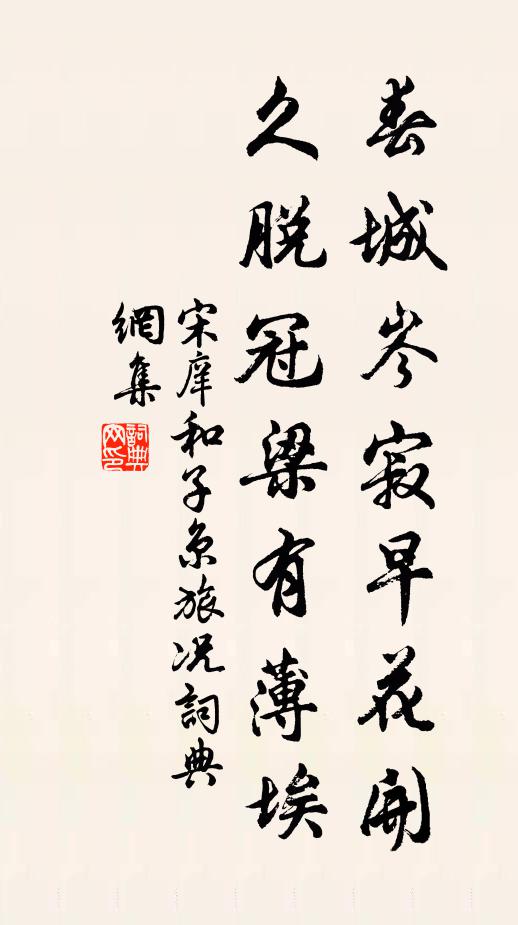 春城岑寂早花開
久脱冠梁有薄埃
宋庠和子京旅况詞典
網集
詞典網印